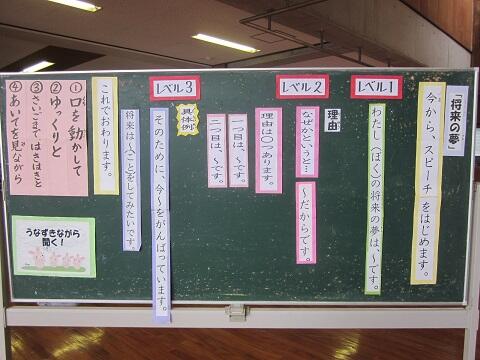 「将来の夢」
今から、スピーチをはじめます。
レベル1
わたし(ぼく)の将来の夢は、~です。
理由
レベル2
なぜかというと…
~だからです。
理由は〇つあります。
一つ目は、~です。
二つ目は、~です。
具体例
レベル3
そのために、今~をがんばっています。
将来は~(こと)をしてみたいです。
これでおわります。
①口を動かして
②ゆっくりと
③さいごまではきはきと
④あいてを見ながら
うなずきながら
聞く!